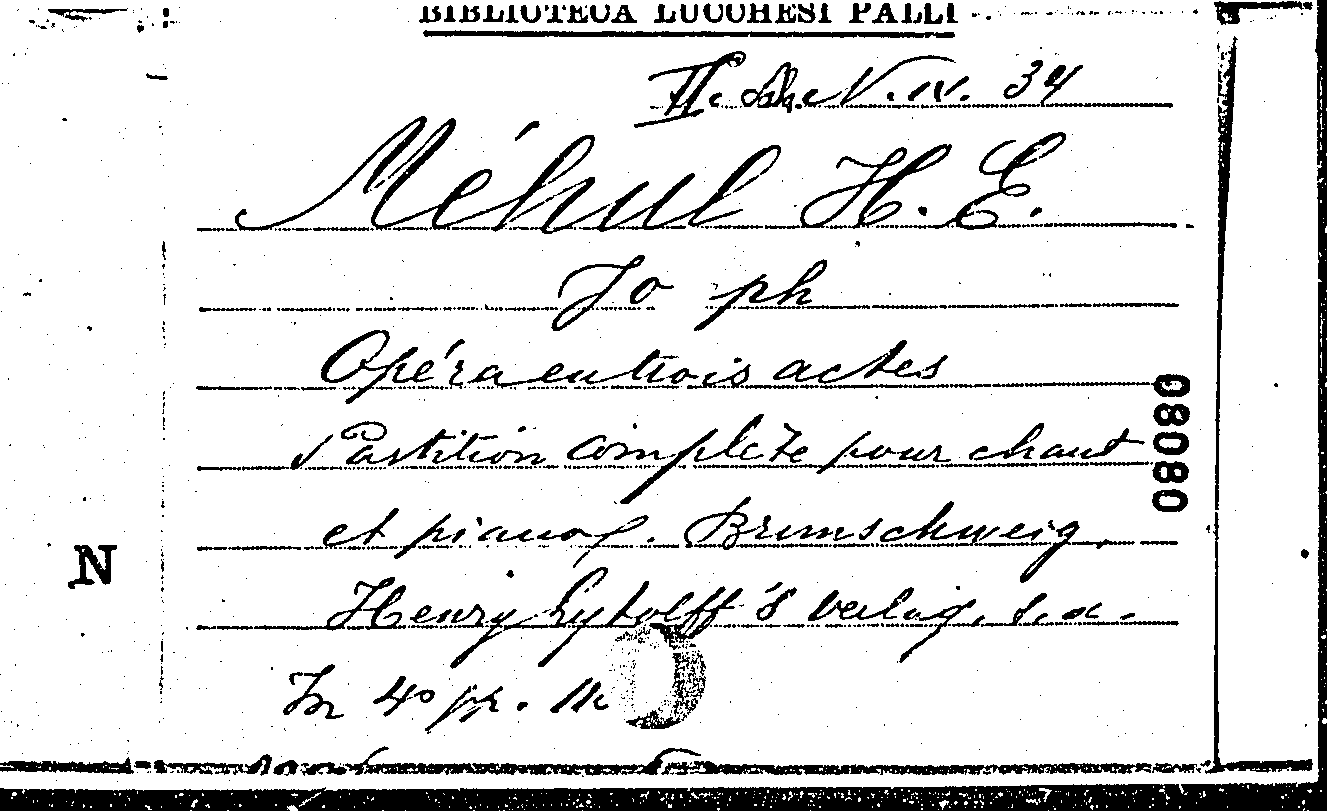 BIBLIOTECA LUCCHESI PALLI
II. Sh. N. IV. 34
Méhul H. E.
Jo ph
Opéra en trois actes
Partition complète pour chant
et piano. Brunschweig,
Henry Lytolff's verlag, s. a.
In 4° pp.
N
08080